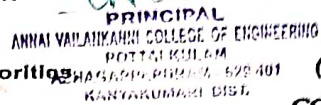 PRINCIPAL
ANNAI VAILANKANNI COLLEGE OF ENGINEERING
POTTALKULAM
AZHAGAPPAPURAM - 629 401
KANYAKUMARI DIST.
orities